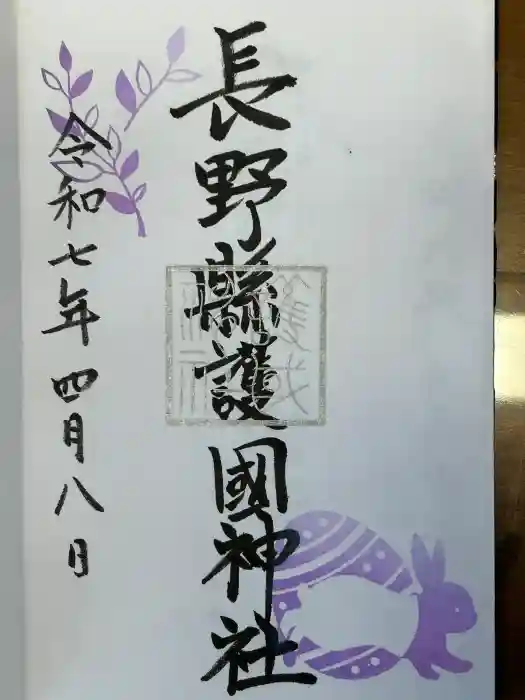 長野縣護國神社
令和七年四月八日